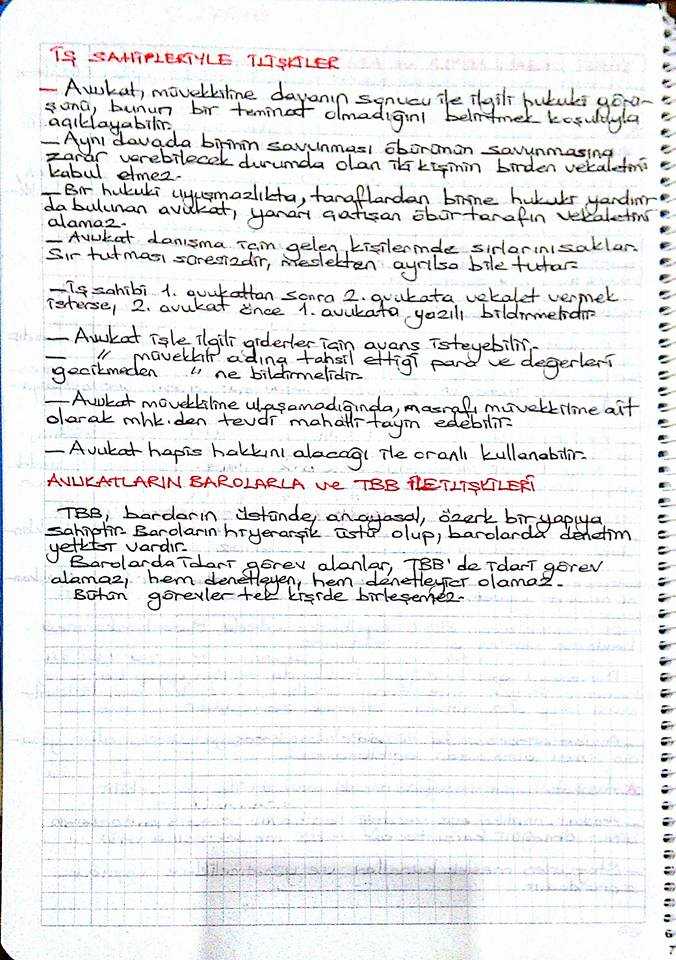 İŞ SAHİPLERİYLE İLİŞKİLER
— Avukat, müvekkiline davanın sonucu ile ilgili hukuki görü-
şünü, bunun bir teminat olmadığını belirtmek koşuluyla
açıklayabilir.
— Aynı davada birinin savunması öbürünün savunmasına
zarar verebilecek durumda olan iki kişinin birden vekaletini
kabul etmez.
— Bir hukuki uyuşmazlıkta, taraflardan birine hukuki yardım
da bulunan avukat, yararı çatışan öbür tarafın vekaletini
alamaz.
— Avukat danışma için gelen kişilerinde sırlarını saklar.
Sır tutması süresizdir, meslekten ayrılsa bile tutar.
— İş sahibi 1. avukattan sonra 2. avukata vekalet vermek
isterse, 2. avukat önce 1. avukata yazılı bildirmelidir.
— Avukat işle ilgili giderler için avans isteyebilir.
— " müvekkili adına tahsil ettiği para ve değerleri
gecikmeden " ne bildirmelidir.
— Avukat müvekkiline ulaşamadığında, masrafı müvekkiline ait
olarak mhk.den tevdi mahalli tayin edebilir.
— Avukat hapis hakkını alacağı ile oranlı kullanabilir.
AVUKATLARIN BAROLARLA ve TBB İLE İLİŞKİLERİ
TBB, baroların üstünde, anayasal, özerk bir yapıya
sahiptir. Baroların hiyerarşik üstü olup, barolarda denetim
yetkisi vardır.
Barolarda idari görev alanlar, TBB'de idari görev
alamaz, hem denetleyen, hem denetleyici olamaz.
Bütün görevler tek kişide birleşemez.
6
7